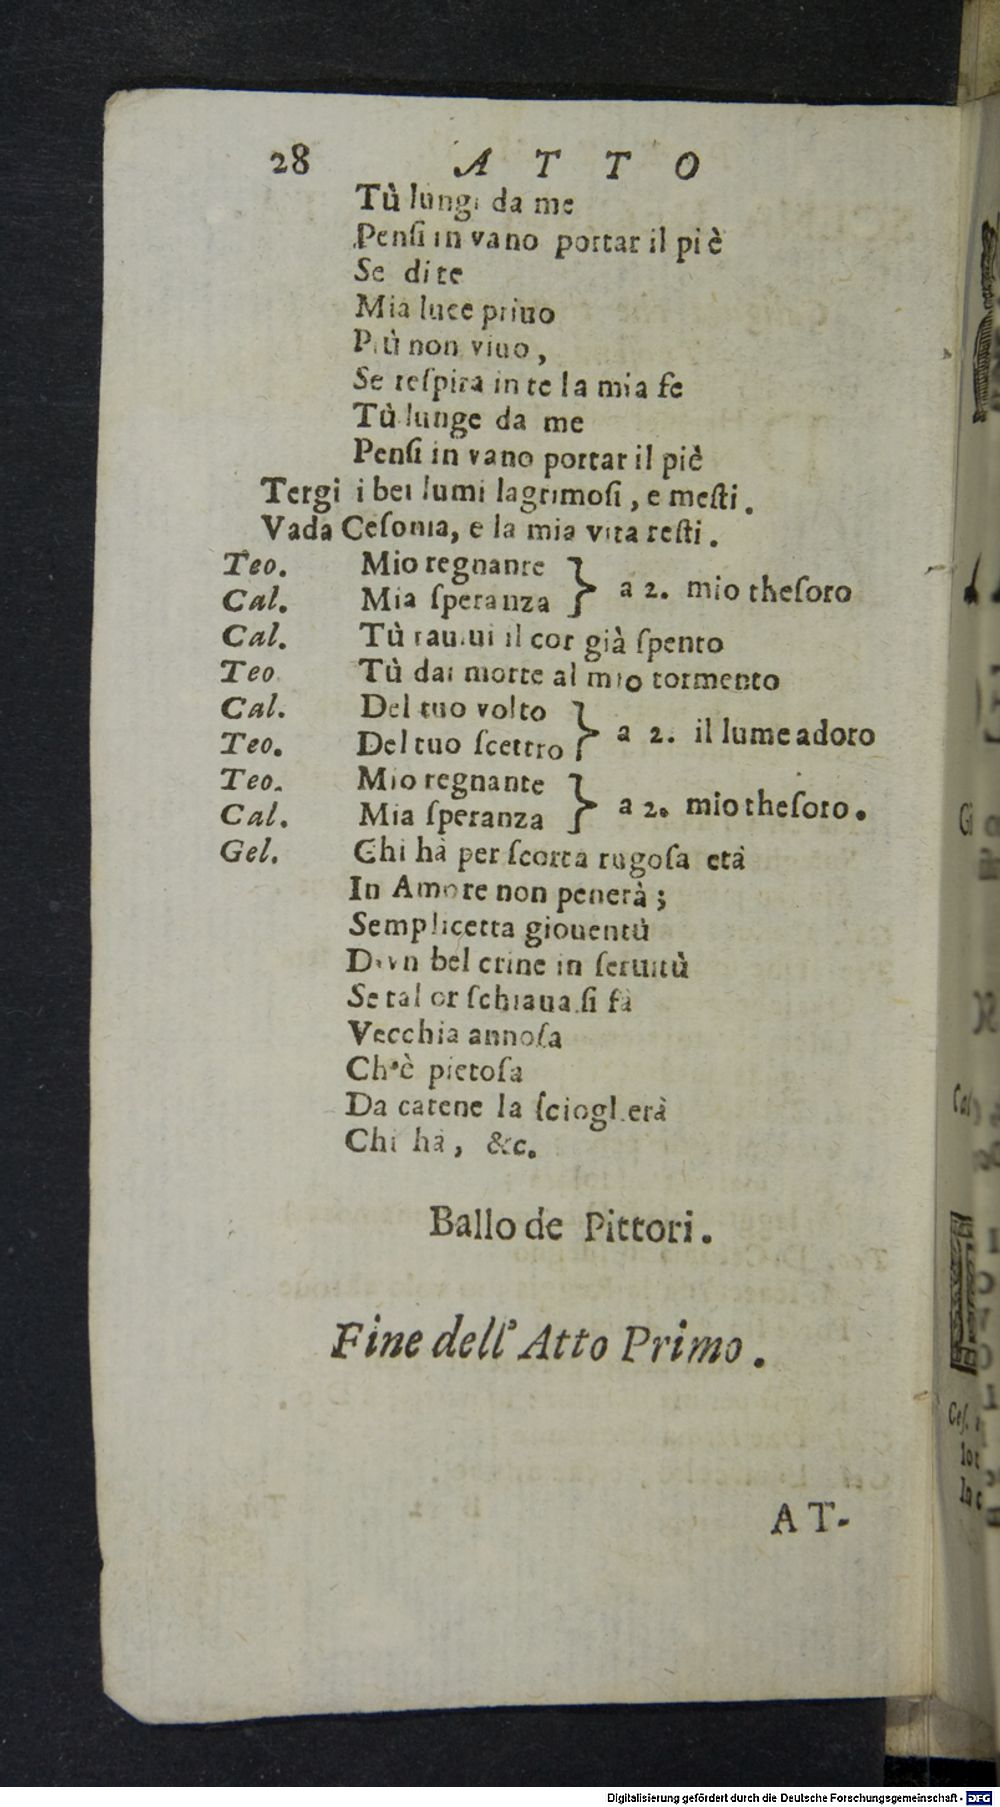 28 ATTO
Tù lungi da me
Penſi in vano portar il piè
Se di te
Mia luce priuo
Più non viuo,
Se reſpira in te la mia fe
Tù lunge da me
Penſi in vano portar il piè
Tergi i bei lumi lagrimoſi, e meſti.
Vada Ceſonia, e la mia vita reſti.
Teo. Mio regnante
Cal. Mia ſperanza } a 2. mio theſoro
Cal. Tù rauiui il cor già ſpento
Teo Tù dai morte al mio tormento
Cal. Del tuo volto
Teo. Del tuo ſcettro } a 2. il lume adoro
Teo. Mio regnante
Cal. Mia ſperanza } a 2. mio theſoro.
Gel. Chi hà per ſcorta rugoſa età
In Amore non penerà;
Semplicetta giouentù
D'vn bel crine in ſeruitù
Se tal or ſchiaua ſi fà
Vecchia annoſa
Ch'è pietoſa
Da catene la ſcioglierà
Chi hà, &c.
Ballo de Pittori.
Fine dell' Atto Primo.
AT-
Digitalisierung gefördert durch die Deutsche Forschungsgemeinschaft - DFG